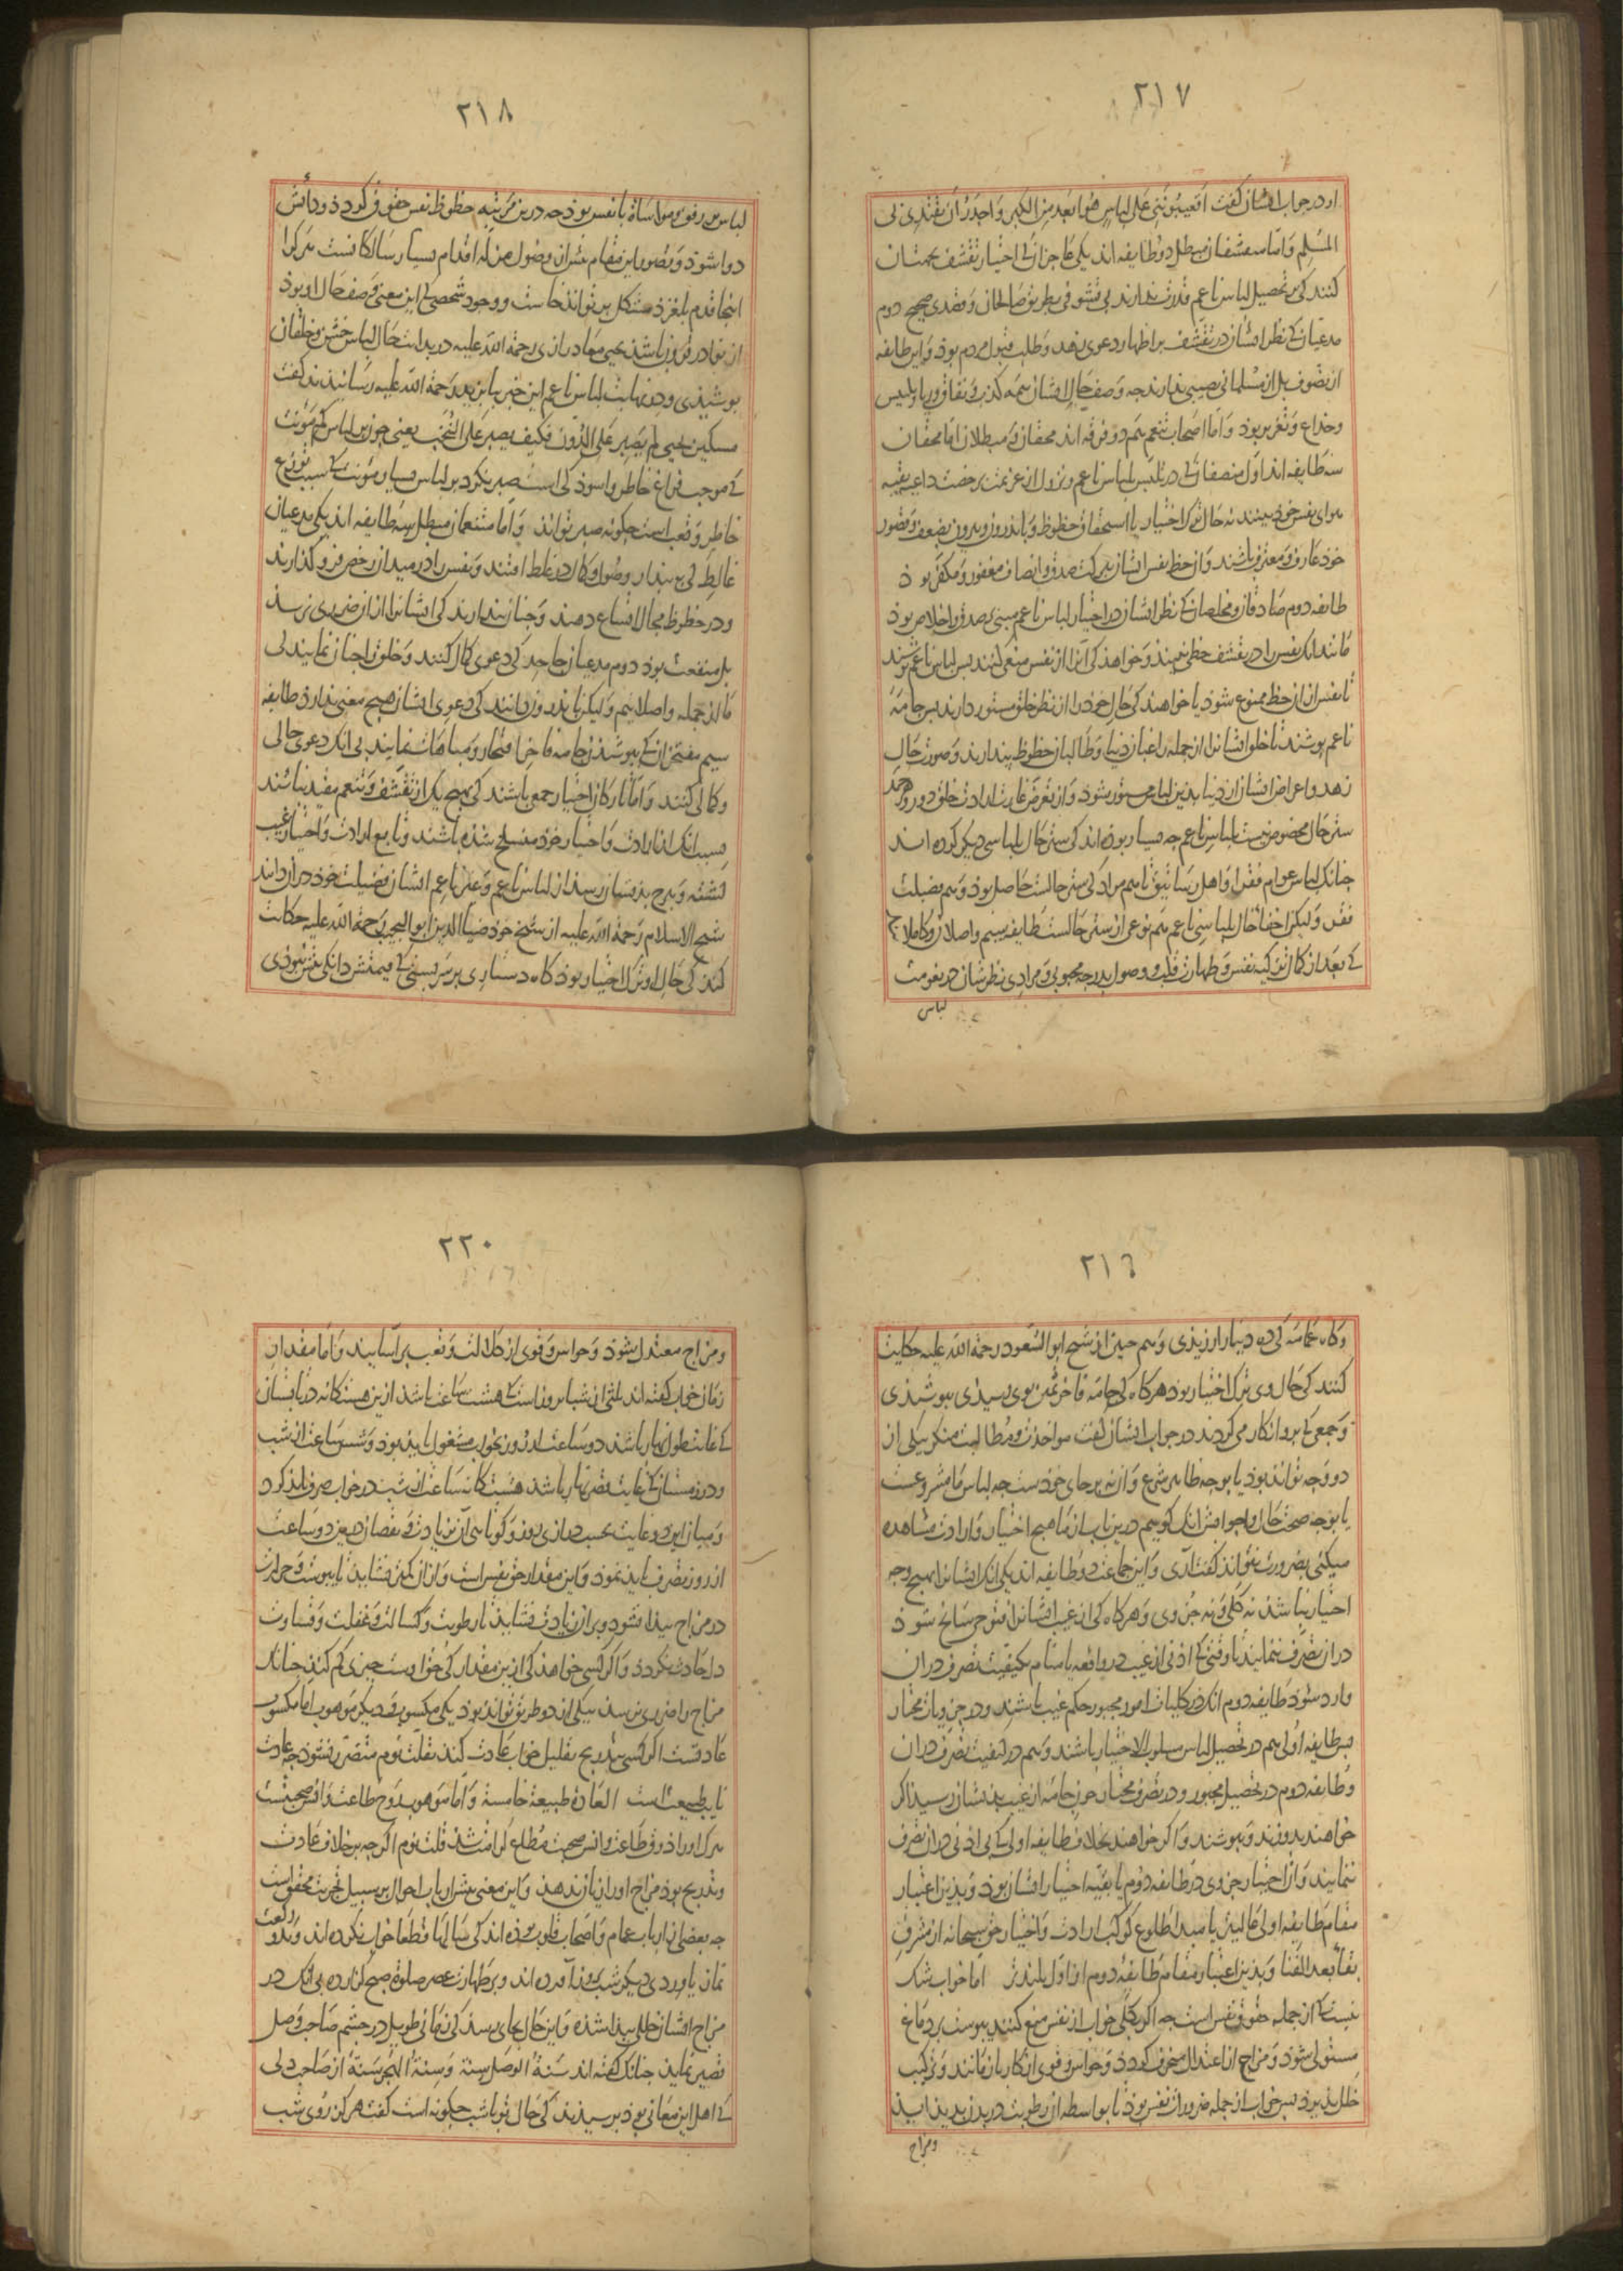 ٢١٧
او در جواب ایشان گفت اتعیبوننی علی لباس هو ابعد من الکبر و اجدر ان یقتدی بی
المسلم و اما متقشفان مبطل دو طایفه اند یکی عاجزان که اختیار تقشف بجهت آن
کنند کی بر تحصیل لباس ناعم قدرت ندارند بی تشوقی بطریق صالحان و قصدی صحیح دوم
مدعیان که نظر ایشان در تقشف بر اظهار دعوی زهد و طلب قبول مردم بود و این طایفه
از تصوف بل از مسلمانی نصیبی ندارند چه وصف حال ایشان همه کذب و نفاق و ریا و تلبیس
و خداع و تغریر بود و اما اصحاب تنعم هم دو فرقه اند محقان و مبطلان اما محقان
سه طایفه اند اول منصفان که در تلبس بلباس ناعم و نزول از عزیمت برخصت داعیه بقیه
هوای نفس خود بینند نه حال ترک اختیار یا استحقاق حظوظ و باندرون و بیرون بضعف و قصور
خود عارف و معترف باشند و آن حظ نفس ایشان ببرکت صدق و انصاف مغفور و مکفر بود
طایفه دوم صادقان و مخلصان که نظر ایشان در اختیار لباس ناعم مبنی بر صدق و اخلاص بود
مانند انک نفس را در تقشف حظی بینند و خواهند کی آنرا از نفس منع کنند پس لباس ناعم پوشند
تا نفس ازان حظ ممنوع شود یا خواهند کی حال خود را از نظر خلق مستور دارند پس جامه
ناعم پوشند تا خلق ایشانرا از جمله راغبان دنیا و طالبان حظوظ پندارند و صورت حال
زهد و اعراض ایشان از دنیا بدین لباس مستور شود و از تعرض غارت ارادت خلق دور و هرچند
ستر حال مخصوص نیست بلباس ناعم چه بسیار بوده اند کی ستر حال بلباسی دیگر کرده اند
چنانک لباس عوام فقرا و اهل رساتیق تا هم مراد کی ستر حالست حاصل بود و هم فضیلت
فقر ولیکن اخفاء حال بلباسی ناعم هم نوعی از ستر حالست طایفه سیم واصلان و کاملان
که بعد از کمال تزکیه نفس و طهارت قلب و وصول بدرجه محبوبی و مرادی نظرشان در نعومت
لباس
٢١٨
لباس بر رفق و مواساة با نفس بود چه درین مرتبه حظوظ نفس حقوق گردد و دائش
دوا شود و تصور این مقام مثران وصول مزلّه اقدام بسیار سالکانست هر کرا
اینجا قدم بلغزد مشکل بر تواند خاست و وجود شخصی که این معنی وصف حال او بود
از نوادر قرون باشد یحیی معاد رازی رحمة الله علیه در بدایت حال لباس خشن و خلقان
پوشیدی و در نهایت لباس ناعم این خبر ببایزید رحمة الله علیه رسانیدند گفت
مسکین یحیی لم یصبر علی الدون فکیف یصبر علی النخب یعنی چون بر لباس کم مؤنت
که موجب فراغ خاطر و اسودگی است صبر نکرد بر لباس بسیار مؤنت که سبب توزع
خاطر و تعب است چگونه صبر تواند و اما متنعمان مبطل سه طایفه اند یکی مدعیان
غالط کی به پندار وصول و کمال در غلط افتند و نفس را در میدان رخص فرو گذارند
و در حظوظ مجال اتساع دهند و چنان پندارند کی ایشانرا ازان ضرری نرسد
بل منفعت بود دوم مدعیان جاحد کی دعوی کمال کنند و خلق را چنان نمایند کی
ما از جمله واصلانیم ولیکن باندرون دانند کی دعوی ایشان هیچ معنی ندارد طایفه
سیم مفتخران که بپوشیدن جامه فاخر افتخار و مباهات نمایند بی انک دعوی حالی
و کمالی کنند و اما تارکان اختیار جمعی باشند کی بهیچ یک از تقشف و تنعم مقید نباشند
بسبب انک از ارادت و اختیار خود منسلخ شده باشند و تابع ارادت و اختیار غیب
گشته و هرچ بدیشان رسد از لباس ناعم و غیر ناعم ایشان فضیلت خود دران دانند
شیخ الاسلام رحمة الله علیه از شیخ خود ضیاء الدین ابو النجیب رحمة الله علیه حکایت
کند کی حال او ترک اختیار بود گاه دستاری بر سر بستی که قیمتش دانکی بیش نبودی
٢١٩
و گاه عمامه کی ده دینار ارزیدی و هم چنین از شیخ ابو السعود رحمة الله علیه حکایت
کنند کی حال وی ترک اختیار بود هر گاه کی جامه فاخر ثمین بوی رسیدی بپوشیدی
و جمعی که برو انکار می کردند در جواب ایشان گفت مواخذت و مطالبت منکر بیکی از
دو وجه تواند بود یا بوجه ظاهر شرع و آن نه بر جای خودست چه لباس ما مشروعست
یا بوجه صحت حال و جوابش انک گوییم درین باب از ما هیچ اختیار و ارادت مشاهده
میکنی بضرورت نتواند گفت آری و این جماعت دو طایفه اند یکی انک ایشانرا بهیچ وجه
اختیار نباشد نه کلی و نه جزوی و هر گاه کی از غیب ایشانرا فتوحی سانح شود
دران تصرف ننمایند تا وقتی که اذنی از غیب در واقعه یا منام بکیفیت تصرف دران
وارد شود طایفه دوم انک در کلیات امور مجبور حکم غیب باشند و در جزویات مختار
پس طایفه اولی هم در تحصیل لباس مسلوب الاختیار باشند و هم در کیفیت تصرف دران
و طایفه دوم در تحصیل مجبور و در تصرف مختار چون جامه از غیب بدیشان رسید اگر
خواهند بدوزند و بپوشند و اگر خواهند بخلاف طایفه اولی که بی اذنی دران تصرف
ننمایند و آن اختیار جزوی در طایفه دوم یا بقیه اختیار ایشان بود و بدین اعتبار
مقام طایفه اولی عالیتر یا مبدا طلوع کوکب ارادت و اختیار حق سبحانه از مشرق
بقاء بعد الفنا و بدین اعتبار مقام طایفه دوم از اول بلندتر اما خواب شک
نیست که از جمله حقوق نفس است چه اگر بکلی خواب از نفس منع کنند یبوست بر دماغ
مستولی شود و مزاج از اعتدال منحرف گردد و حواس و قوی از کار باز مانند و ترکیب
خلل پذیرد پس خواب از جمله ضرورات نفس بود تا بواسطه ان رطوبت در بدن پدید آید
ومزاج
٢٢٠
و مزاج معتدل شود و حواس و قوی از کلالت و تعب برآسایند و اما مقدار
زمان خواب گفته اند ثلثی از شبانروز است که هشت ساعت باشد ازین هشتگانه در تابستان
که غایت طول نهار باشد دو ساعت از روز بخواب مشغول باید بود و شش ساعت از شب
و در زمستان که غایت قصر نهار باشد هشتگانه ساعت از شب در خواب صرف باید کرد
و میان این دو غایت بحسب درازی روز و کوتاهی آن زیادت و نقصان در هین دو ساعت
از روز تصرف باید نمود و این مقدار حق نفس است و از ان کمتر نشاید تا یبوست و حرارت
در مزاج پیدا نشود و بران زیادت نشاید تا رطوبت و کسالت و غفلت و قساوت
دل حادث نگردد و اگر کسی خواهد کی ازین مقدار کی خواب است چیزی کم کند چنانک
مزاج را ضرری نرسد بیکی از دو طریق تواند بود یکی مکسوب و دیگر موهوب اما مکسوب
عادتست اگر کسی بتدریج بتقلیل خواب عادت کند بقلت نوم متضرر نشود چه عادت
نایب طبیعت است العادة طبیعة خامسة و اما موهوب روح طاعت و انس صحبتست
هرک او را ذوق طاعت و انس صحبت مطلع کرامت شد قلت نوم اگر چه بر خلاف عادت
و تدریج بود مزاج او را زیان ندهد و این معنی پیش ارباب احوال بر سبیل تجربت محقق است
چه بعضی از ارباب عمام و اصحاب قلوب بوده اند کی سالها قطعا خواب نکرده اند و بدو رکعت
نماز یا وردی دیگر شب بروز آورده اند و بر طهارت عصر صلوة صبح گزارده بی انک در
مزاج ایشان خللی پیدا شده و این حال بجای رسد کی زمانی طویل در چشم صاحب وصل
قصیر نماید چنانک گفته اند سنة الوصل سنة و سنة الهجر سنة از صاحب دلی
که اهل این معانی بود پرسیدند کی حال تو با شب چگونه است گفت هرگز روی شب